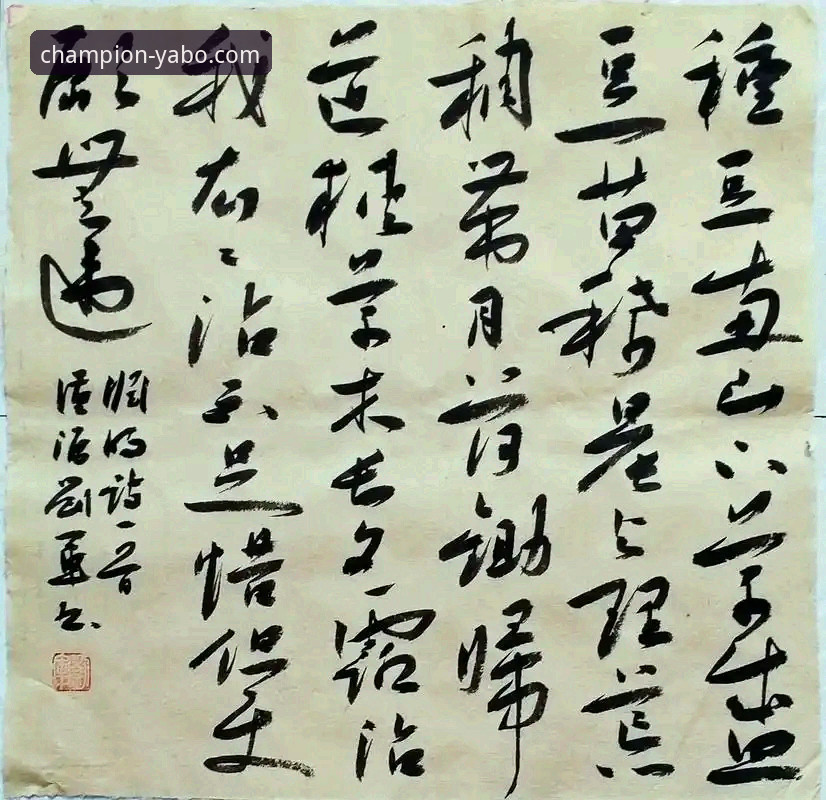 champion-yabo.com
種豆南山下草盛
豆苗稀晨興理荒
穢帶月荷鋤歸
道狹草木長夕露沾
我衣〻沾不足惜但使
願無違
明詩一首
劉軍书